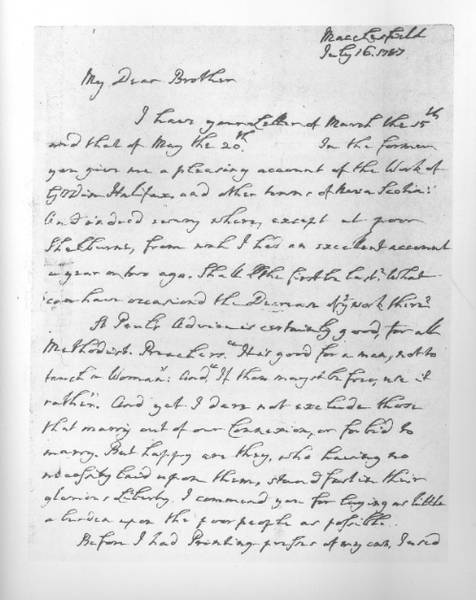 Macclesfield
July 16. 1787
My Dear Brother
I have your Letter of March the 15th
and that of May the 20th. In the former
you give me a pleasing account of the Work of
God in Halifax, and other towns of Nova Scotia:
And indeed every where, except at poor
Shelburne, from wch I had an excellent account
a year or two ago. Shall the first be last? What
can have occasiond the Decrease of ye work there?
St Paul's Advice is certainly good, for all
Methodist Preachers. "It is good for a man, not to
touch a Woman": And, "If thou mayst be free, use it
rather". And yet I dare not exclude those
that marry out of our Connexion, or forbid to
marry. But happy are they, who having no
necessity laid upon them, stand fast in their
glorious Liberty. I commend you for laying as little
a burden upon the poor people as possible.
Before I had Printing-presses of my own, I used